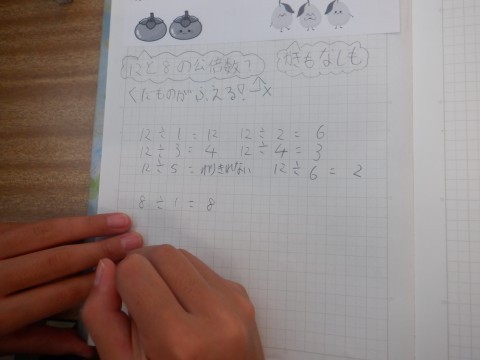 12と8の公倍数? かきもなしも
くだものがふえる? →x
12 ÷ 1 = 12 12 ÷ 2 = 6
12 ÷ 3 = 4 12 ÷ 4 = 3
12 ÷ 5 = わりきれない 12 ÷ 6 = 2
8 ÷ 1 = 8